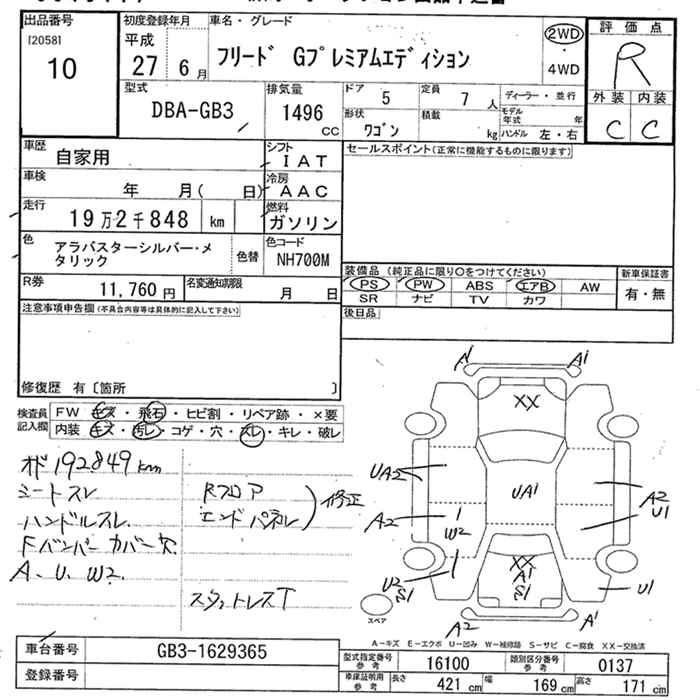 出品番号 初度登録年月 車名・グレード 評価点
[2058] 平成 2WD R
10 27 6月 フリード Gプレミアムエディション ・4WD
型式 排気量 ドア 5 定員 7人 ディーラー・並行 外装 内装
DBA-GB3 1496 cc 形状 ワゴン 積載 kg モデル年式 年 C C
ハンドル 左・右
車歴 自家用 シフト IAT セールスポイント(正常に機能するものに限ります)
車検 年 月( 日) 冷房 AAC
走行 19万2千848 km 燃料 ガソリン
色 アラバスターシルバー・メタリック 色替 色コード NH700M
装備品 (純正品に限り○をつけてください) 新車保証書
R券 11,760円 名変通知期限 月 日 PS PW ABS エアB AW 有・無
SR ナビ TV カワ
注意事項申告欄(不具合内容等は具体的に記入して下さい) 後日品
修復歴 有〔箇所 〕
検査員記入欄 FW キズ・飛石・ヒビ割・リペア跡・×要
内装 キズ・汚レ・コゲ・穴・スレ・キレ・破レ
オド192849km
シートスレ Rフロア
ハンドルスレ エンドパネル 修正
Fバンパーカバー欠
A、U、W2
スタットレスT
A1 A1
XX
UA2 UA1 A2
A2 W2 U1
XX
U2 A1
S1 S1 U1
A2 A1
スペア
A-キズ E-エクボ U-凹み W-補修跡 S-サビ C-腐食 XX-交換済
車台番号 GB3-1629365 型式指定番号 参考 16100 類別区分番号 参考 0137
登録番号 車庫証明用 参考 長さ 421cm 幅 169cm 高さ 171cm